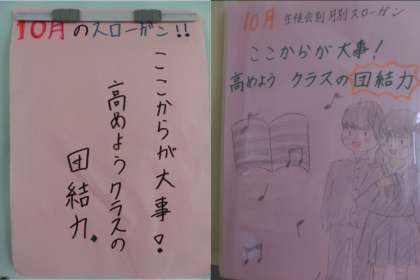 10月のスローガン!!
ここからが大事!
高めようクラスの
団結力
10月 生徒会別月別スローガン
ここからが大事!
高めよう クラスの団結力